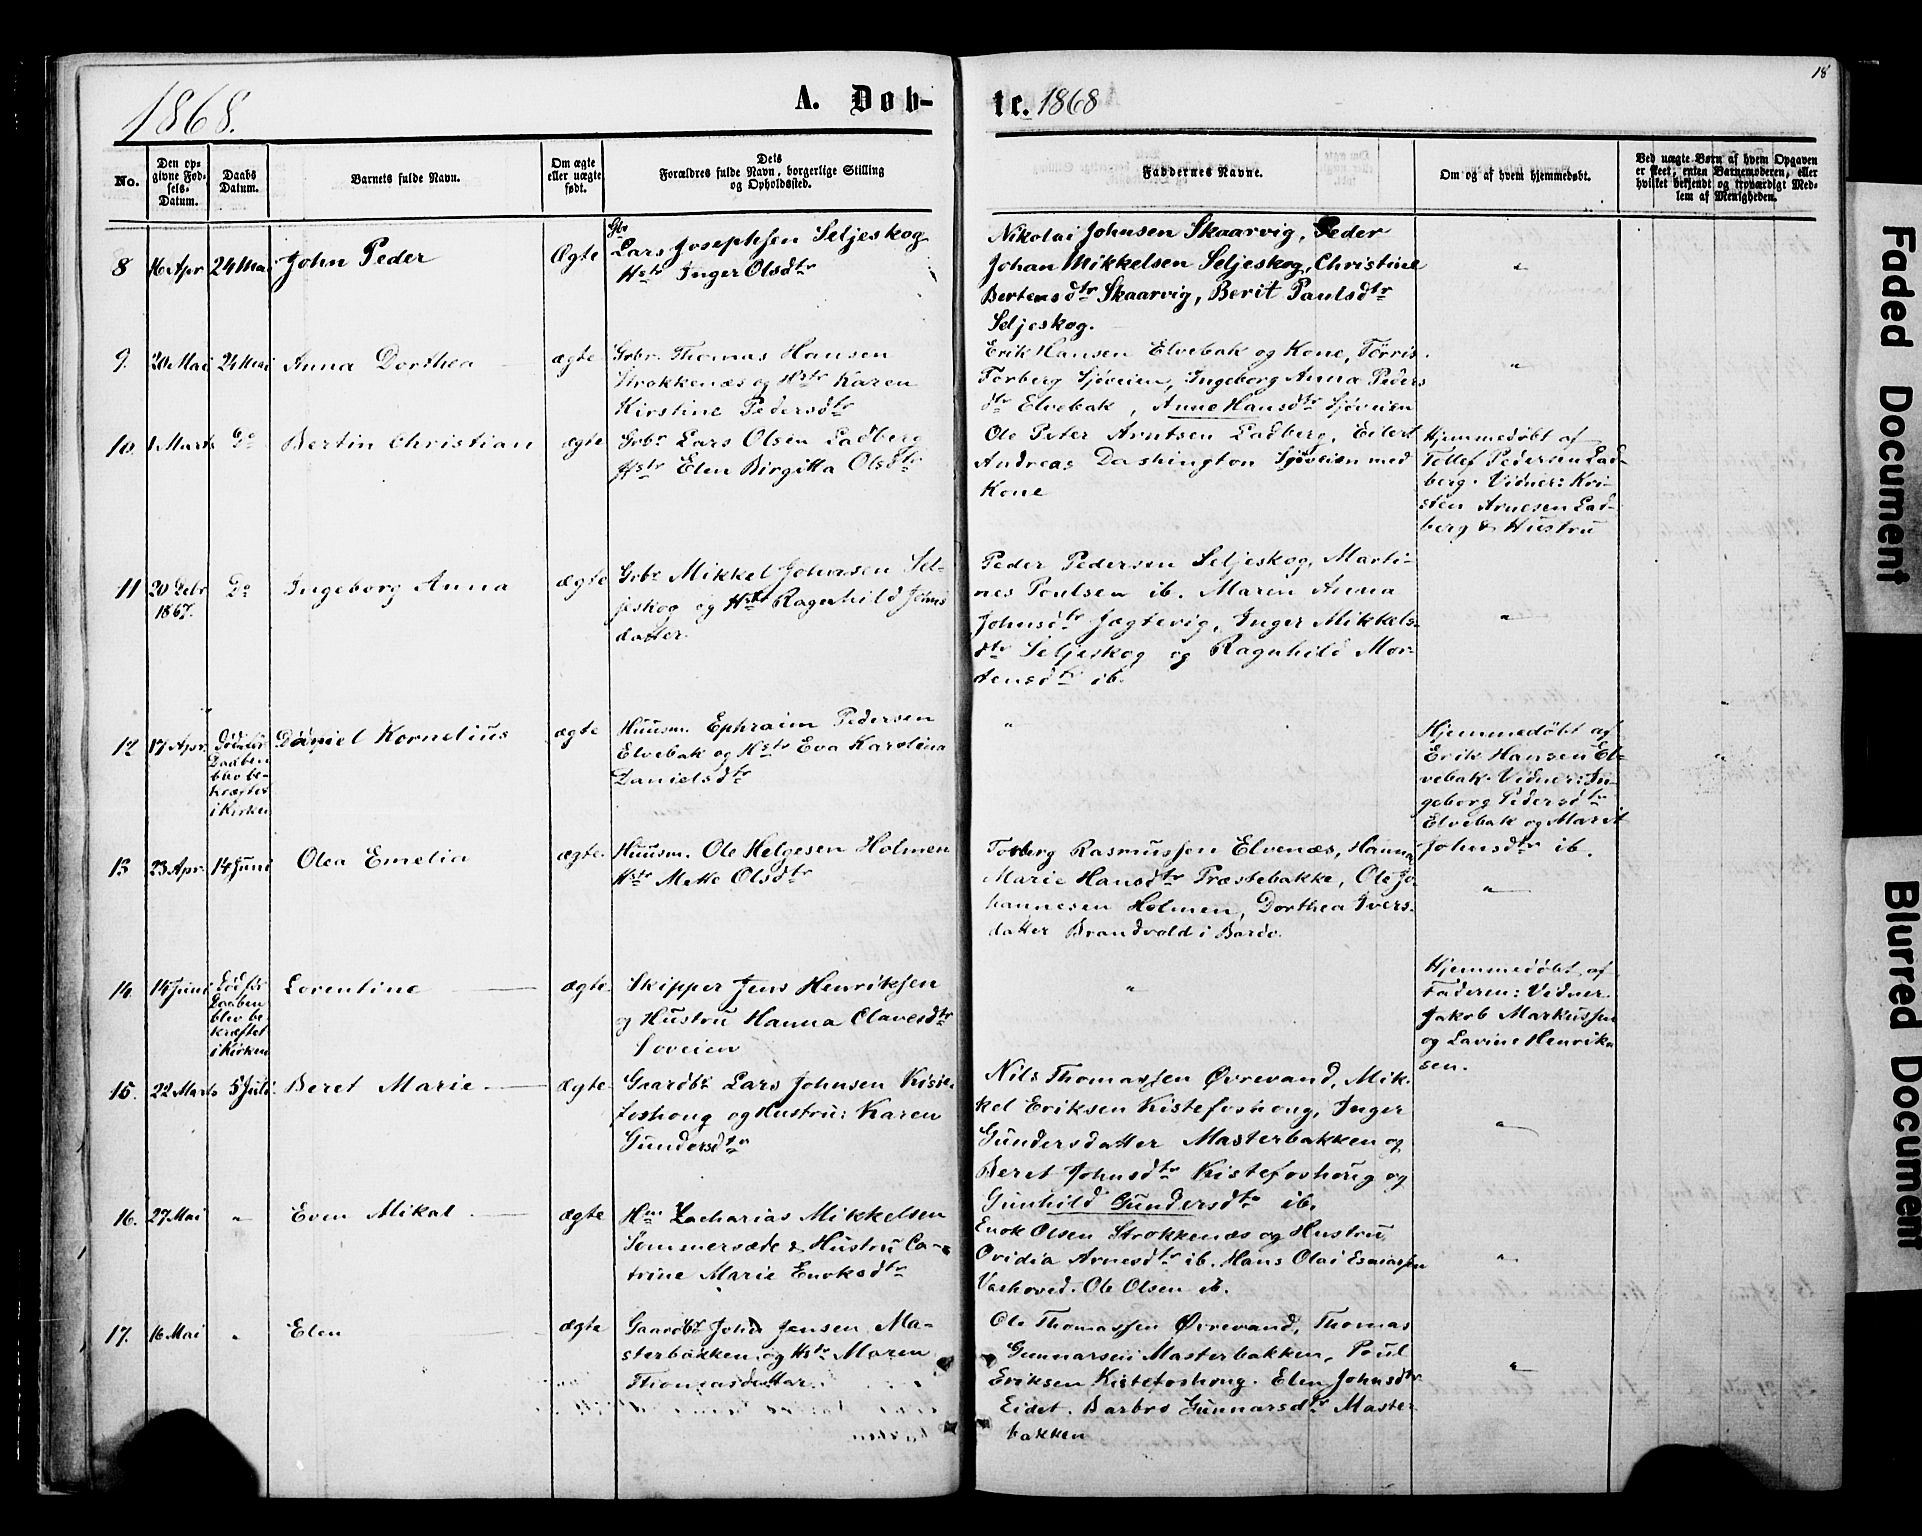 18
1868.
A. Døb-
te. 1868
No.
Den op-
givne Fød-
sels-
Datum.
Daabs
Datum.
Barnets fulde Navn.
Om ægte
eller uægte
født.
Dets
Forældres fulde Navn, borgerlige Stilling
og Opholdssted.
Faddernes Navne.
Om og af hvem hjemmedøbt.
Ved uægte Børn af hvem Opgaven
er skeet, enten Barnemoderen, eller
hvilket bekjendt og troværdigt Med-
lem af Menigheden.
8 16 Apr 24 Mai John Peder Ægte
Gbr
Lars Josephsen Seljeskog
Hstr Inger Olsdtr
Nikolai Johnsen Skaarvig, Peder
Johan Mikkelsen Seljeskog, Christine
Bertensdtr Skaarvig, Berit Paulsdtr
Seljeskog.
"
9. 20 Mai 24 Mai Anna Dorthea ægte
Grbr. Thomas Hansen
Strokkenæs og Hstr Karen
Kirstine Pedersdtr
Erik Hansen Elvebak og Kone, Tørris
Torberg Sjøveien, Ingeborg Anna Peders
dtr Elvebak, Anne Hansdtr Sjøveien
"
10. 1 Marts Do Bertin Christian ægte
Grbr Lars Olsen Ladberg
Hstr Elen Birgitta Olsdtr
Ole Peter Arntsen Ladberg, Eilert
Andreas Dashington Sjøveien med
Kone
Hjemmedøbt af
Tellef Pedersen Lad-
berg. Vidner: Kri-
sten Arnesen Lad-
berg & Hustru
11 20 Debr
1867. Do Ingeborg Anna ægte
Grbr Mikkel Johnsen Sel-
jeskog og Hstr Ragnhild Johns
datter.
Peder Pedersen Seljeskog, Marti-
nes Poulsen ib. Maren Anna
Johnsdtr Jægtevig, Inger Mikkels-
dtr Seljeskog og Ragnhild Mor-
tensdtr ib.
"
12 17 Apr.
Død før
Daaben
blev be-
kræftet
i Kirken
Daniel Kornelius ægte
Huusm. Ephraim Pedersen
Elvebak og Hstr Eva Karolina
Danielsdtr
"
Hjemmedøbt af
Erik Hansen El-
vebak. Vidner: In-
geborg Pedersdtr
Elvebak og Marit
Johnsdtr ib.
"
13 23 Apr. 14 Juni Olea Emelia ægte.
Huusm. Ole Helgesen Holmen
Hstr Mette Olsdtr
Torberg Rasmussen Elvenæs, Hanna
Marie Hansdtr Præstebakke, Ole Jo-
hannesen Holmen, Dorthea Ivers-
datter Brandvold i Bardo.
"
14. 14 Juni
Død før
Daaben
blev be-
kræftet
i Kirken
Lorentine ægte
Skipper Jens Henriksen
og Hustru Hanna Olavesdtr
Soveien
"
Hjemmedøbt af
Faderen: Vidner
Jakob Markussen
og Lavine Henrik-
sen.
15. 22 Marts 5 Juli. Beret Marie ægte
Gaardbr Lars Johnsen Kiste-
foshoug og Hustru: Karen
Gundersdtr
Nils Thomassen Øvrevand, Mik-
kel Eriksen Kistefoshoug, Inger
Gundersdatter Masterbakken og
Beret Johnsdtr Kistefoshoug og
Gunhild Gundersdtr ib.
"
16. 27 Mai " Even Mikal ægte
Hm Zacharias Mikkelsen
Sommersæde & Hustru Ca-
trine Marie Enoksdtr
Enok Olsen Strokkenæs og Hustru
Ovidia Arnesdtr ib. Hans Olai Esaiassen
Vashoved. Ole Olsen ib.
"
17. 16 Mai " Elen ægte
Gaardbr John Jensen Ma-
sterbakken og Hstr Maren
Thomasdatter
Ole Thomassen Øvrevand, Thomas
Gunnarsen Masterbakken, Poul
Eriksen Kistefoshoug. Elen Johnsdtr
Eidet. Barbro Gunnarsdtr Master
bakken
"
Faded Document
Blurred Document